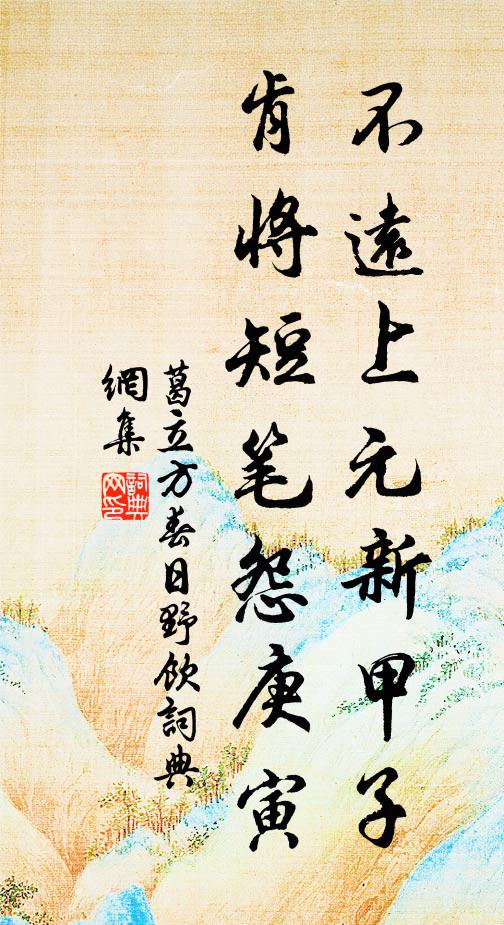 不遠上元新甲子
肯將短笔怨庚寅
葛立方春日野飲詞典
網集
詞典
网印